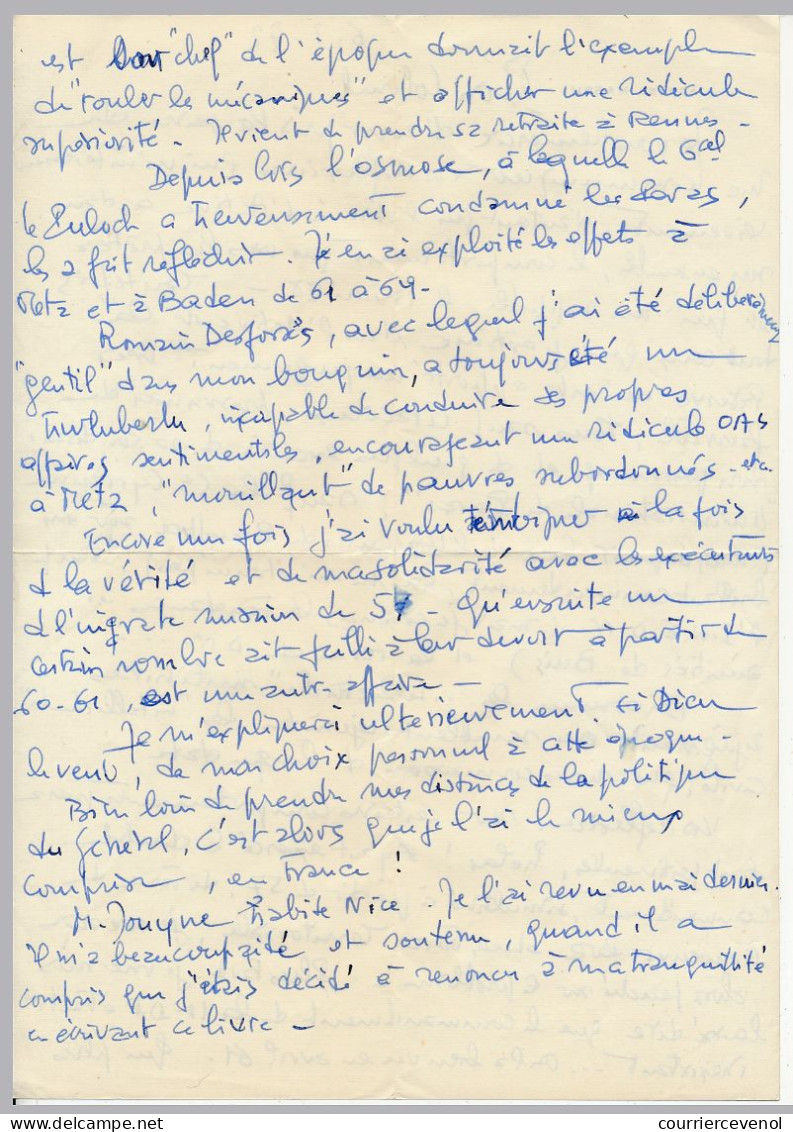 est leur "chef" de l'époque donnait l'exemple
de "rouler les mécaniques" et afficher une ridicule
supériorité - Il vient de prendre sa retraite à Rennes -
Depuis lors l'osmose, à laquelle le Gal
le Puloch a heureusement condamné les paras,
les a fait réfléchir. J'en ai exploité les effets à
Metz et à Baden de 61 à 64 -
Romain Desfossés, avec lequel j'ai été délibérément
"gentil" dans mon bouquin, a toujours été un
hurluberlu, incapable de conduire ses propres
affaires sentimentales, encourageant un ridicule OAS
à Metz, "mouillant" de pauvres subordonnés - etc.
Encore une fois j'ai voulu témoigner à la fois
de la vérité et de ma solidarité avec les exécutants
de l'ingrate mission de 57 - Qu'ensuite un
certain nombre ait failli à leur devoir à partir de
60-61, est une autre affaire -
Je m'expliquerai ultérieurement, si Dieu
le veut, de mon choix personnel à cette époque -
Bien loin de prendre mes distances de la politique
du Général, c'est alors que je l'ai le mieux
comprise, en France !
M. Jouyne habite Nice - Je l'ai revu en mai dernier.
Il m'a beaucoup aidé et soutenu, quand il a
compris que j'étais décidé à renoncer à ma tranquillité
en écrivant ce livre -
courriercevenol